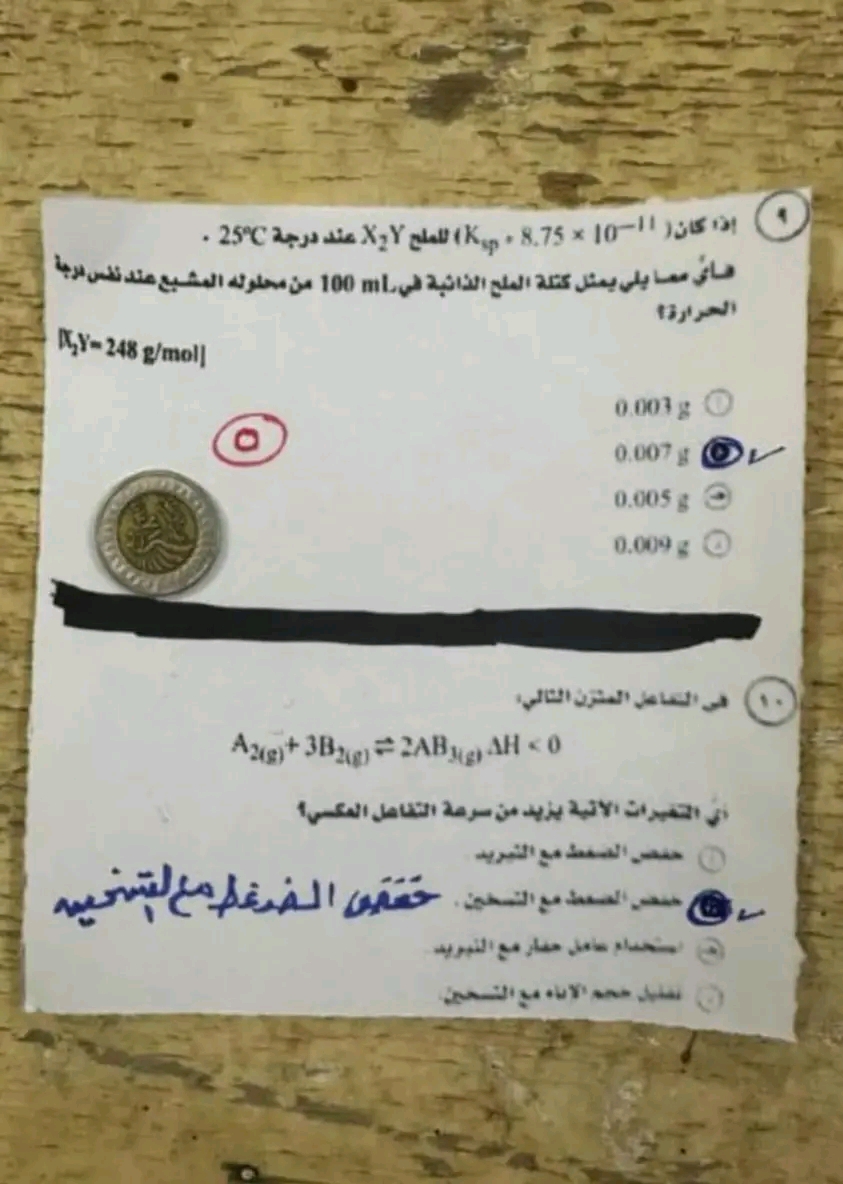 ٩ إذا كان (Ksp = 8.75 × 10⁻¹¹) للملح X₂Y عند درجة 25ºC .
فأي مما يلي يمثل كتلة الملح الذائبة في 100 mL من محلوله المشبع عند نفس درجة
الحرارة؟
[X₂Y= 248 g/mol]
أ 0.003 g
0.007 g
ج 0.005 g
د 0.009 g
١٠ في التفاعل المتزن التالي:
A₂(g) + 3B₂(g) ⇌ 2AB₃(g) ΔH < 0
أي التغيرات الآتية يزيد من سرعة التفاعل العكسي؟
أ خفض الضغط مع التبريد
خفض الضغط مع التسخين . خفض الضغط مع التسخين
ج استخدام عامل حفاز مع التبريد
د تقليل حجم الإناء مع التسخين